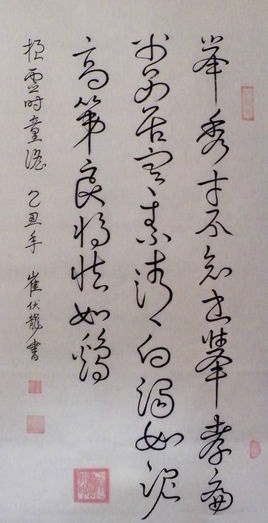 举秀才不知书举孝廉
父别居寒素清白浊如泥
高第良将怯如鸡
桓灵时童谣 丑年 崔伏龍書